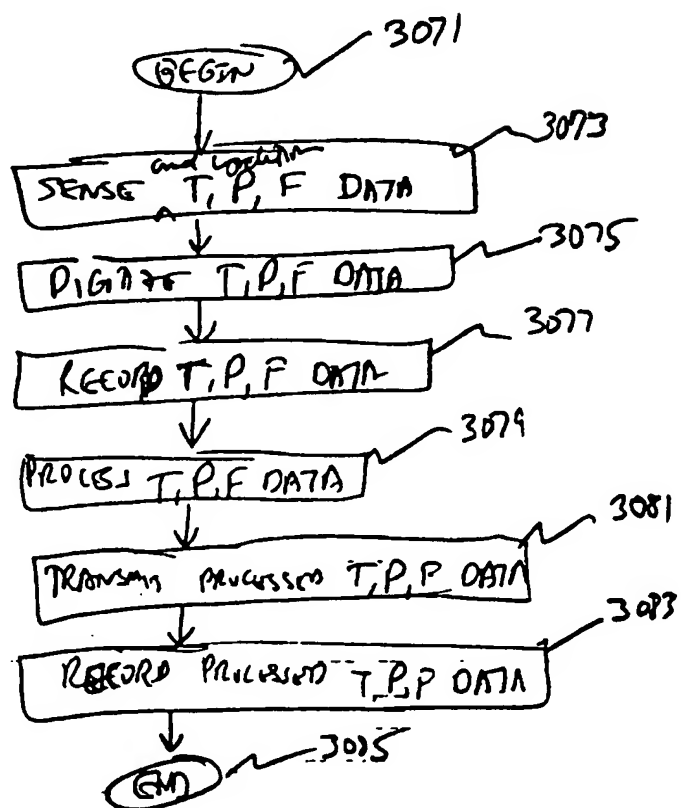 3071
BEGIN
3073
and location
SENSE T, P, F DATA
3075
DIGITIZE T, P, F DATA
3077
RECORD T, P, F DATA
3079
PROCESS T, P, F DATA
3081
TRANSMIT PROCESSED T, P, P DATA
3083
RECORD PROCESSED T, P, P DATA
3085
END